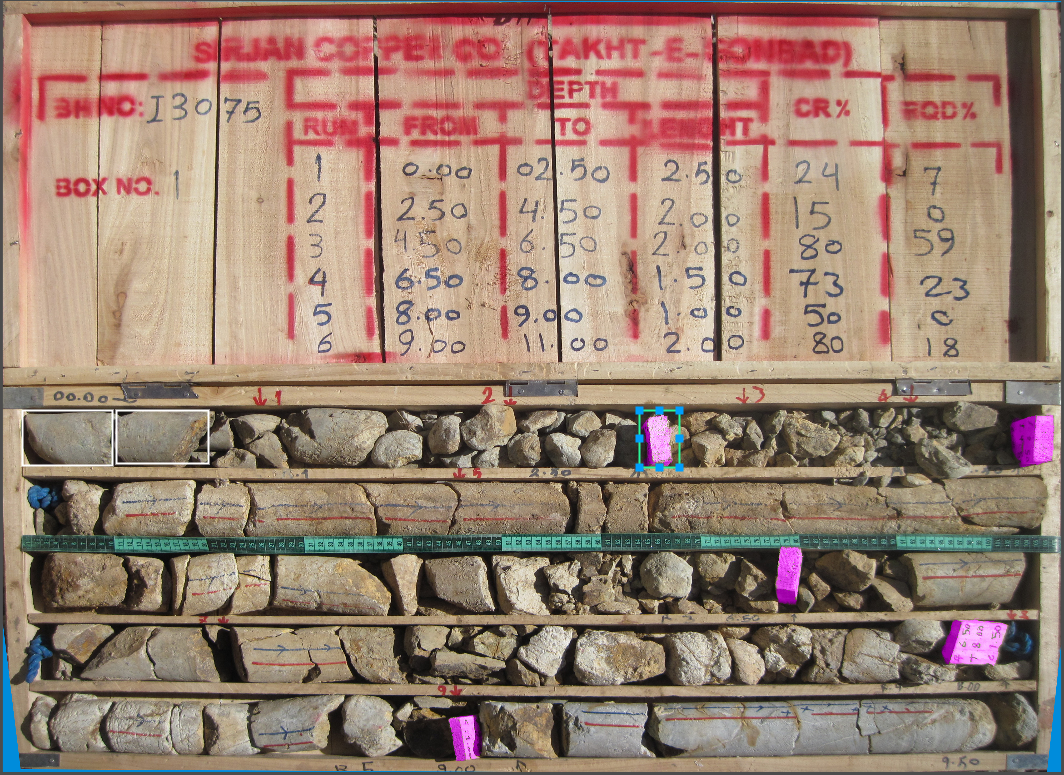 SIRJAN COPPER CO. (TAKHT-E-GONBAD)
DEPTH
BH NO: I3075 RUN FROM TO LENGHT CR% RQD%
BOX NO. 1
1 0.00 02.50 2.50 24 7
2 2.50 4.50 2.00 15 0
3 4.50 6.50 2.00 80 59
4 6.50 8.00 1.50 73 23
5 8.00 9.00 1.00 50 0
6 9.00 11.00 2.00 80 18
00.00 1 2 3 4
5
6.50
6.50
8.00
1.50
9 8.00
R 5 9.00 9.50